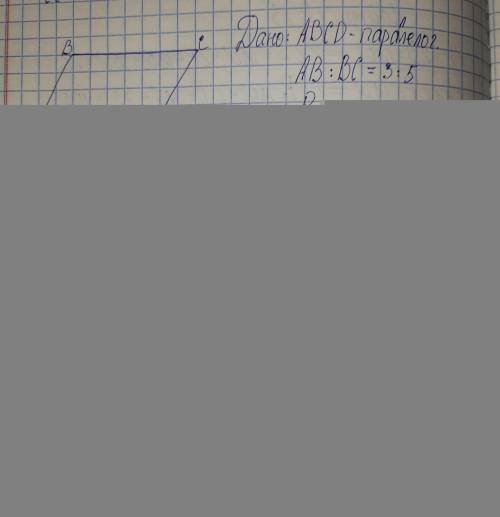 B C
Дано: ABCD - паралелог.
AB : BC = 3 : 5